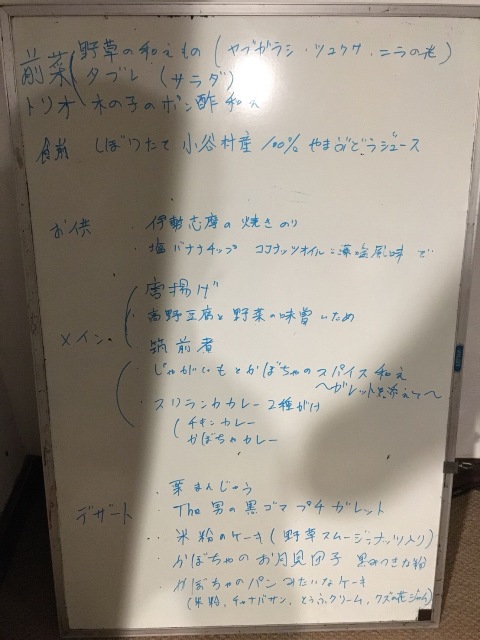 前菜 野草の和えもの (ヤブガラシ・ツユクサ・ニラの花)
タブレ (サラダ)
トリオ 木の子のポン酢和え
食前 しぼりたて 小谷村産 100% やまぶどうジュース
お供 ・伊勢志摩の焼きのり
・塩バナナチップ ココナッツオイルと藻塩風味で
メイン ・唐揚げ
・高野豆腐と野菜の味噌いため
・筑前煮
・じゃがいもとかぼちゃのスパイス和え
〜ガレットを添えて〜
・スリランカカレー 2種がけ
(チキンカレー
かぼちゃカレー
デザート ・栗まんじゅう
・The 男の黒ゴマプチガレット
・米粉のケーキ (野草スムージー ナッツ入り)
・かぼちゃのお月見団子 黒みつきな粉
・かぼちゃのパンみたいなケーキ
(米粉、チャナバサン、とうふクリーム、クズの花ジャム)